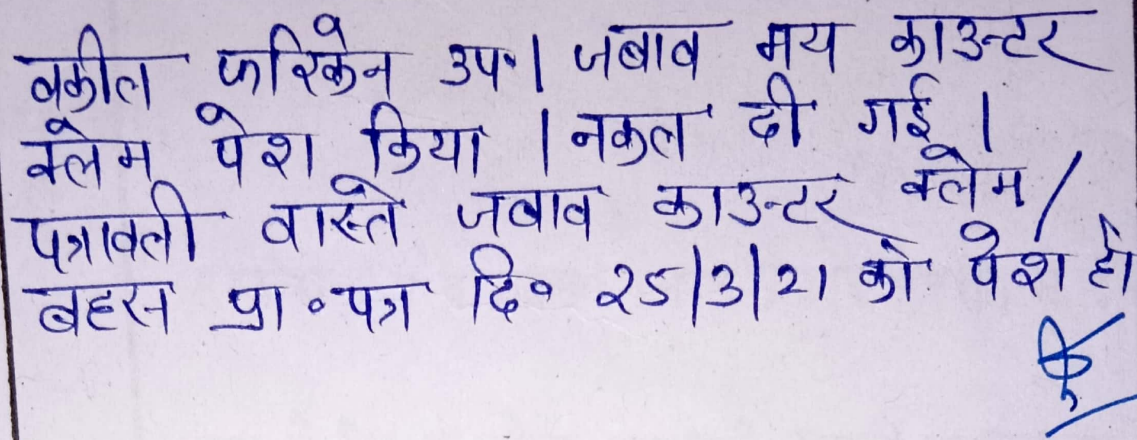 वकील फरिकेन उप॰। जबाव मय काउन्टर
क्लेम पेश किया । नकल दी गई ।
पत्रावली वास्ते जबाव काउन्टर क्लेम/
बहस प्रा॰पत्र दि॰ 25/3/21 को पेश हो